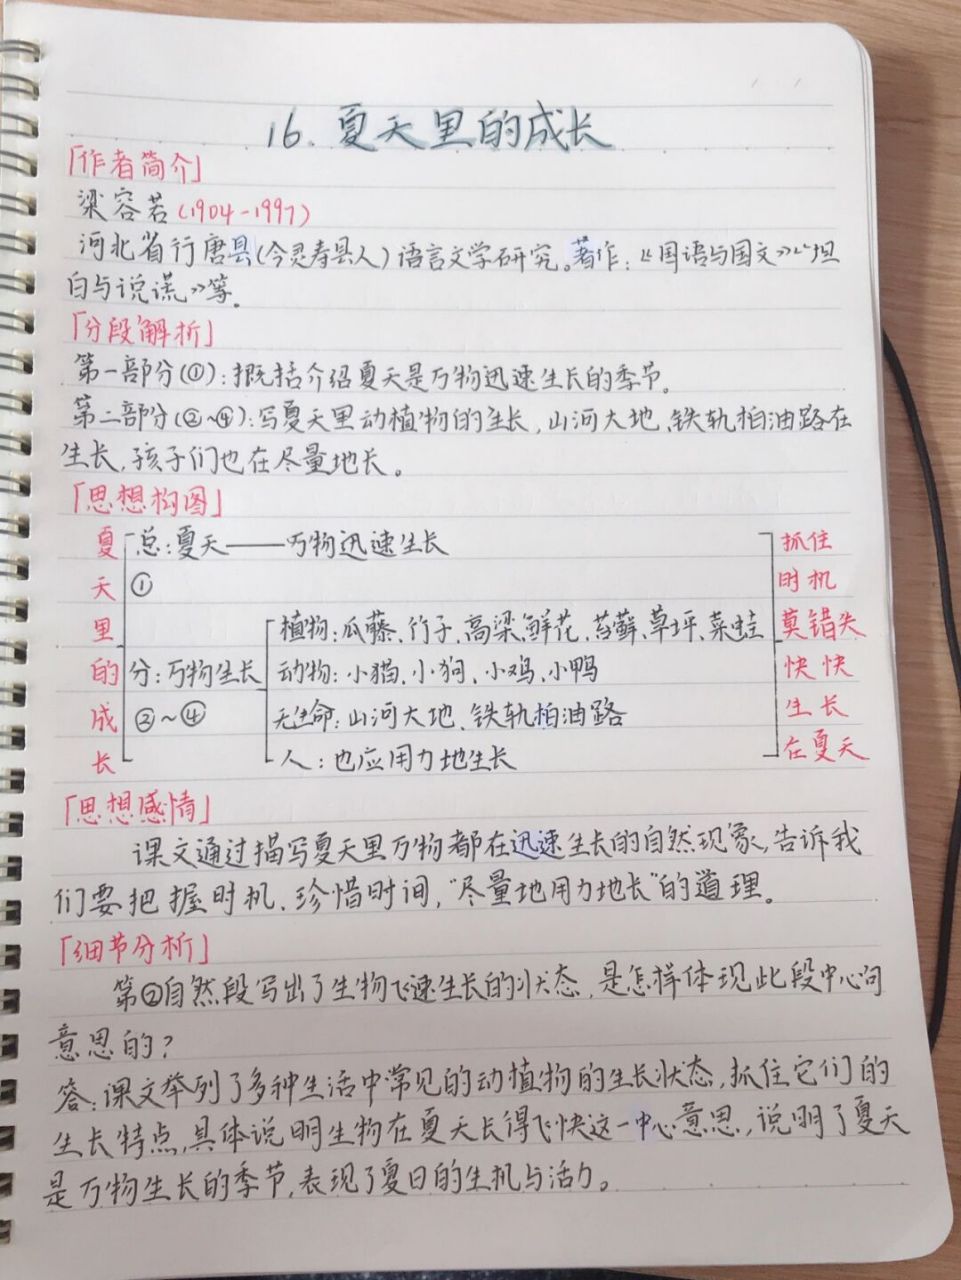 16.夏天里的成长
「作者简介」
梁容若(1904-1997)
河北省行唐县(今灵寿县人)语言文学研究。著作:《国语与国文》《坦
白与说谎》等。
「分段解析」
第一部分(①):概括介绍夏天是万物迅速生长的季节。
第二部分(②~④):写夏天里动植物的生长,山河大地、铁轨柏油路在
生长,孩子们也在尽量地长。
「思想构图」
夏天里的成长
总:夏天——万物迅速生长
①
分:万物生长
②~④
植物:瓜藤、竹子、高粱、鲜花、苔藓、草坪、菜蛙
动物:小猫、小狗、小鸡、小鸭
无生命:山河大地、铁轨柏油路
人:也应用力地生长
抓住
时机
莫错失
快快
生长
在夏天
「思想感情」
课文通过描写夏天里万物都在迅速生长的自然现象,告诉我
们要把握时机、珍惜时间,“尽量地用力地长”的道理。
「细节分析」
第②自然段写出了生物飞速生长的状态,是怎样体现此段中心句
意思的?
答:课文举列了多种生活中常见的动植物的生长状态,抓住它们的
生长特点,具体说明生物在夏天长得飞快这一中心意思,说明了夏天
是万物生长的季节,表现了夏日的生机与活力。